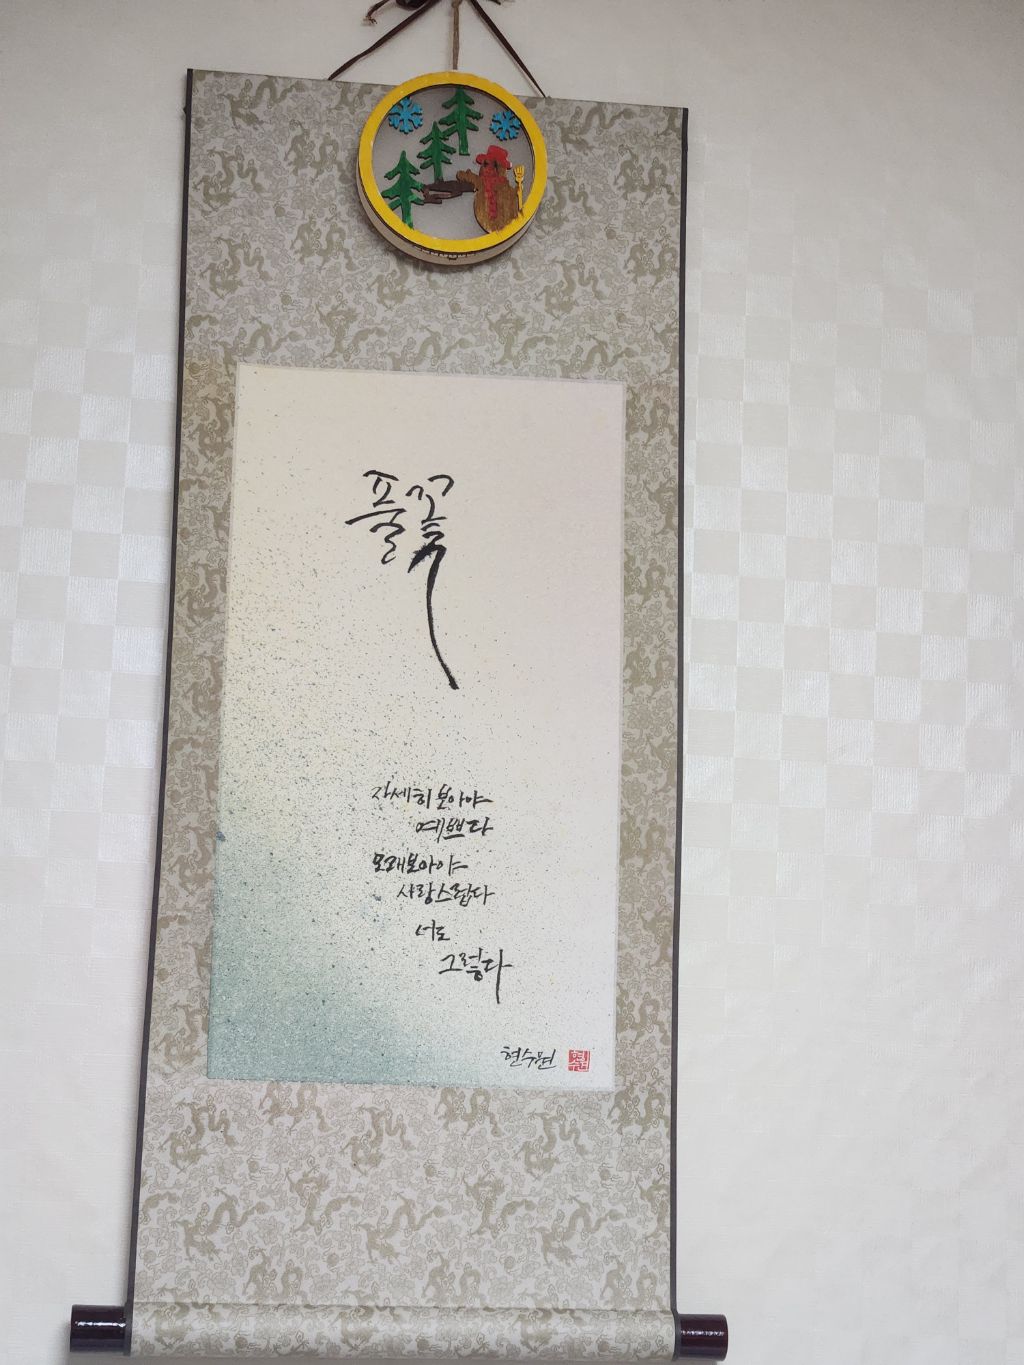 풀꽃
자세히 보아야
예쁘다
오래보아야
사랑스럽다
너도
그렇다
현수원 현수원